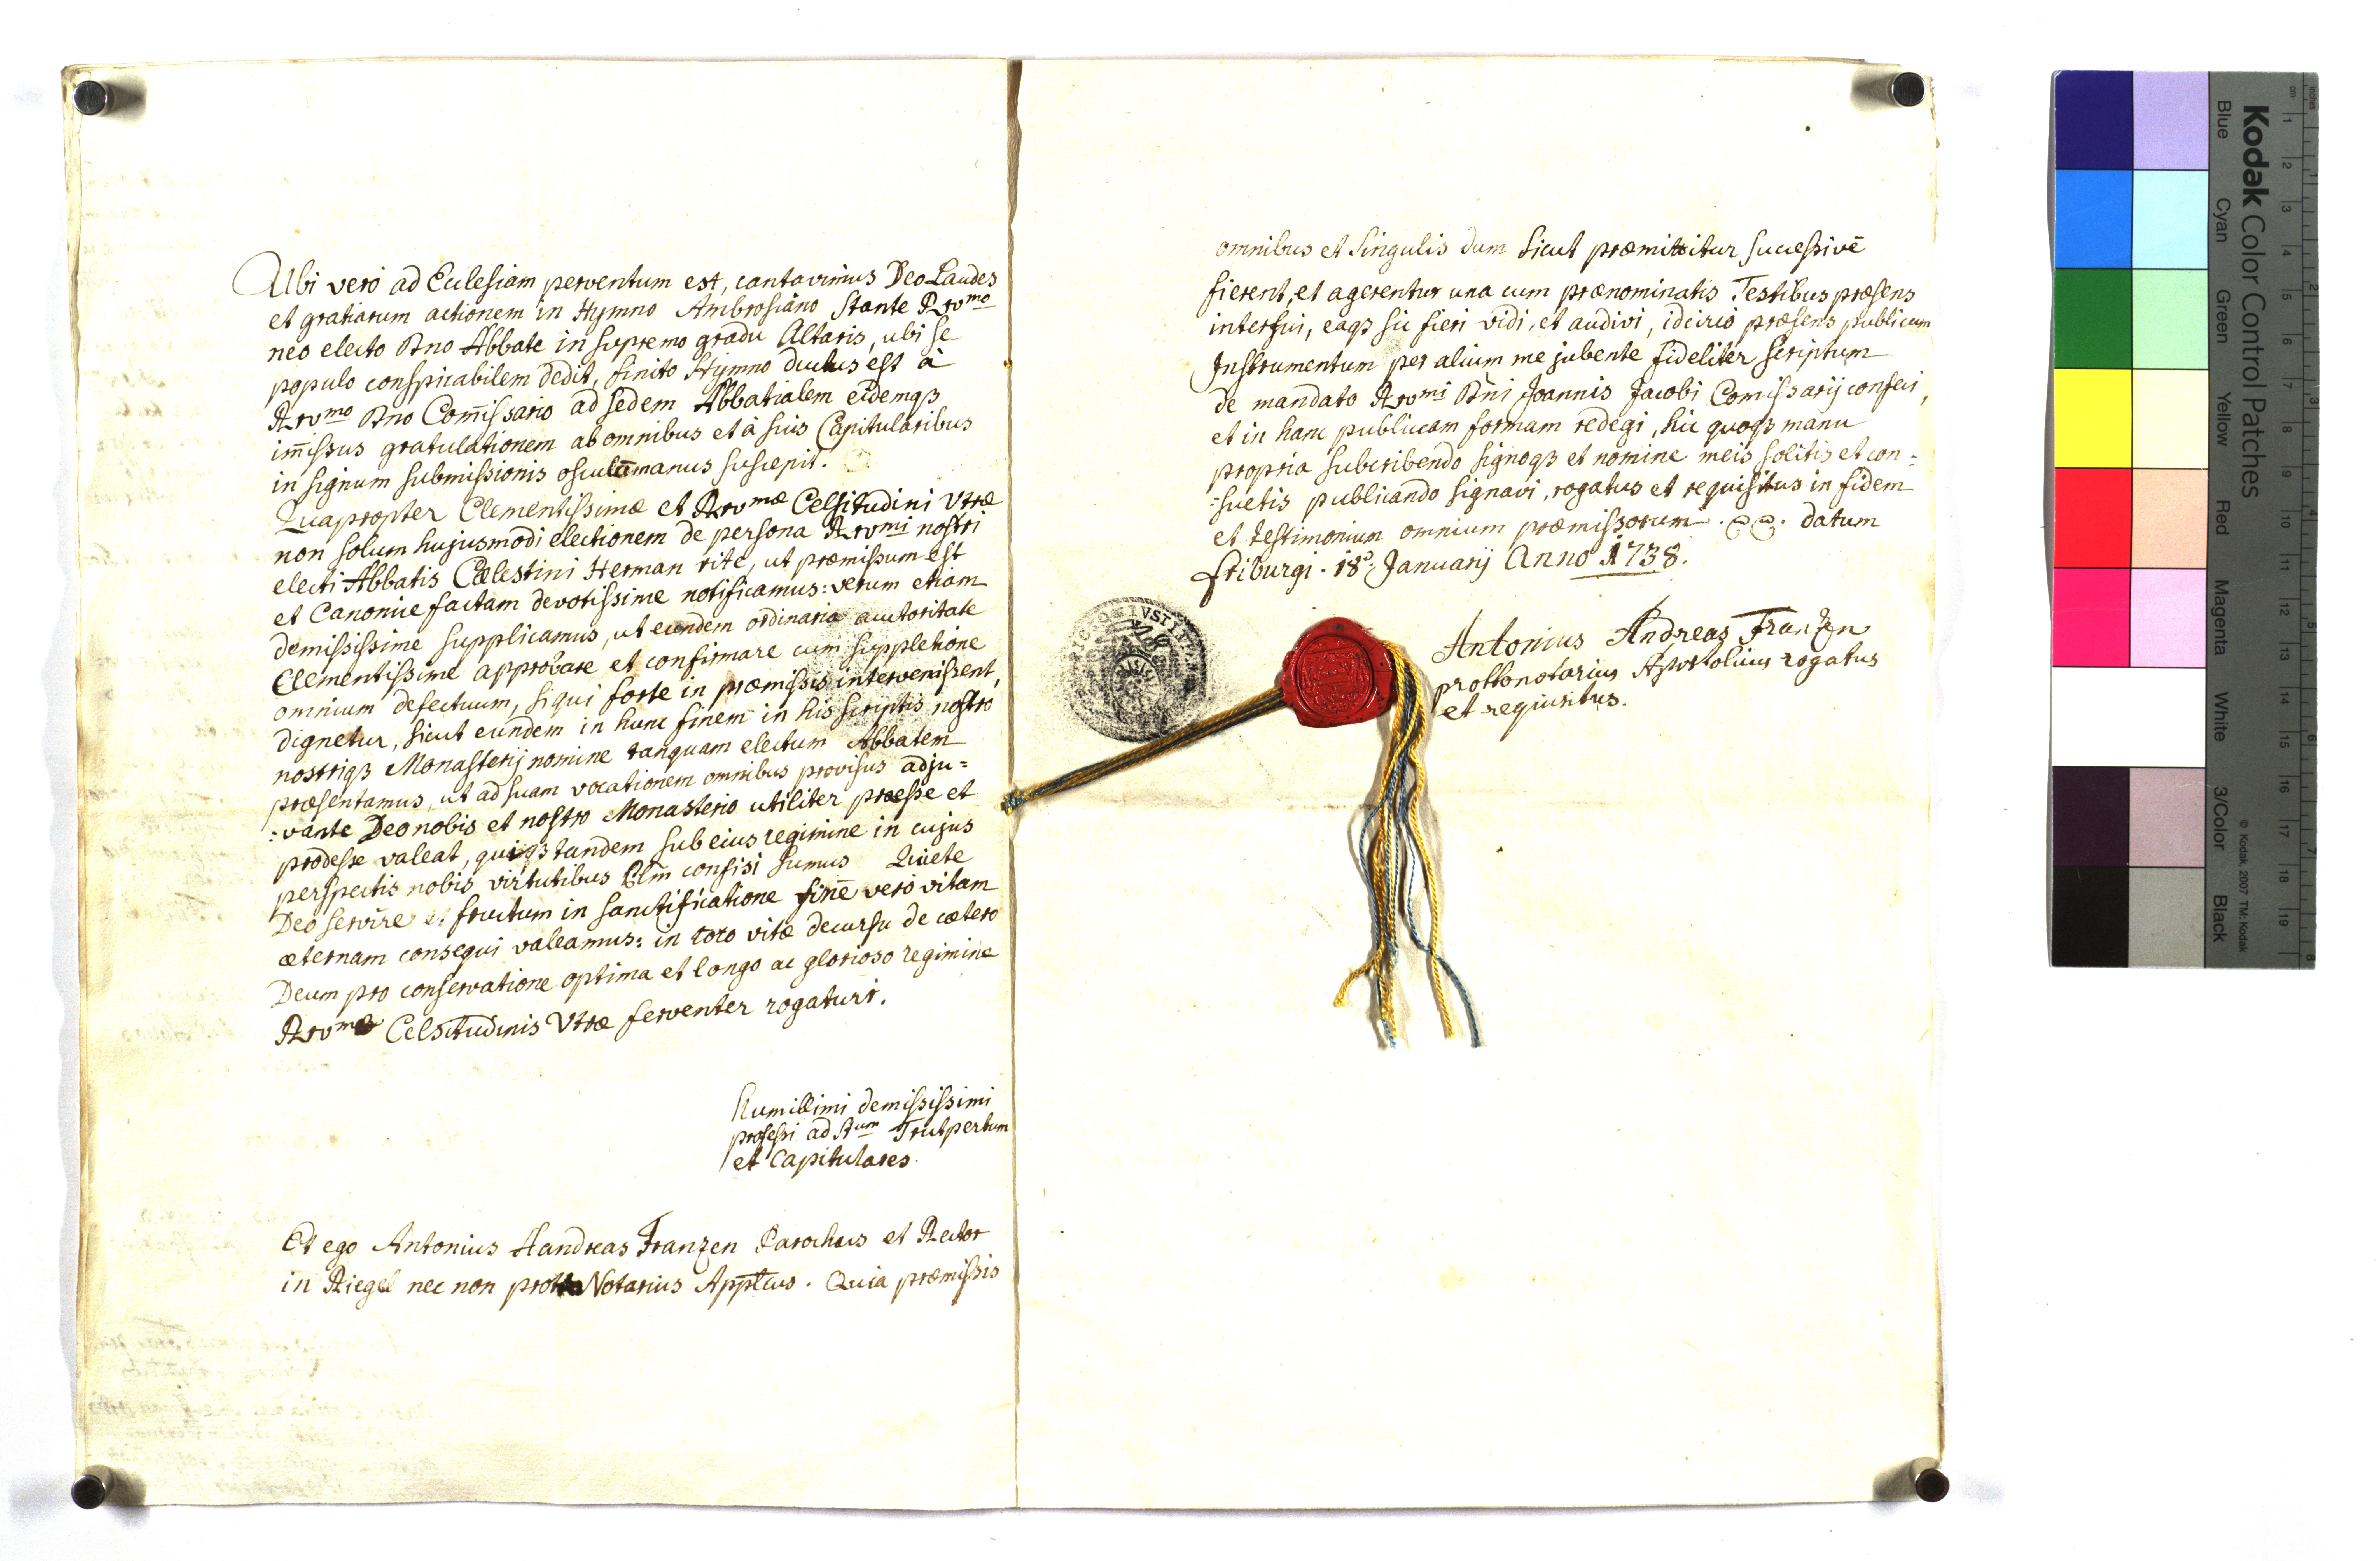 Ubi vero ad Ecclesiam perventum est, cantavimus Deo Laudes
et gratiarum actionem in Hymno Ambrosiano stante Rvmo
neo electo Dno Abbate in supremo gradu Altaris, ubi se
populo conspicabilem dedit, finito Hymno ductus est à
Rvmo Dno Com̄issario ad sedem Abbatialem eidemqȝ
im̄issus gratulationem ab omnibus et à suis Capitularibus
in signum submissionis osculū manus suscepit.
Quapropter Clementissimæ et Rvmæ Celsitudini Vræ
non solum hujusmodi electionem de persona Rvmi nostri
electi Abbatis Cœlestini Herman rite, ut præmissum est
et Canonice factam devotissime notificamus: verum etiam
demississime supplicamus, ut eundem ordinaria auctoritate
Clementissime approbare et confirmare cum suppletione
omnium defectuum, si qui forte in præmissis intervenissent,
dignetur, sicut eundem in hunc finem in his scriptis nostro
nostriqȝ Monasterij nomine tanquam electum Abbatem
præsentamus, ut ad suam vocationem omnibus provisus adju=
=vante Deo nobis et nostro Monasterio utiliter præesse et
prodesse valeat, quiqȝ tandem sub eius regimine in cujus
perspectis nobis virtutibus confisi sumus Quiete
Deo servire et fructum in sanctificatione finē vero vitam
æternam consequi valeamus: in toto vitæ decursu de cætero
Deum pro conservatione optima et longo ac glorioso regimine
Rvmæ Celsitudinis Vræ ferventer rogaturi.
humillimi demississimi
professi ad Stum Trutpertum
et Capitulares.
Et ego Antonius Handreas Franzen Parochus et Rector
in Riegel nec non proto Notarius Appl̄cus. Quia præmissis
omnibus et singulis dum sicut præmittitur successivè
fierent, et agerentur una cum prænominatis Testibus præsens
interfui, eaqȝ sic fieri vidi, et audivi, idcirco præsens publicum
Instrumentum per alium me jubente fideliter scriptum
de mandato Rvmi Dni Joannis Jacobi Comissarij confeci,
et in hanc publicam formam redegi, hic quoqȝ manu
propria subcribendo signoqȝ et nomine meis solitis et con=
=suetis publicando signavi, rogatus et requisitus in fidem
et testimonium omnium præmissorum. datum
friburgi. 18. Januarij Anno 1738.
Antonius Andreas Franzen
prottonotarius Apostolicus rogatus
et requisitus.
Kodak Color Control Patches
Blue Cyan Green Yellow Red Magenta White 3/Color Black
© Kodak, 2007 TM: Kodak
inches 1 2 3 4 5 6 7 8
cm 1 2 3 4 5 6 7 8 9 10 11 12 13 14 15 16 17 18 19